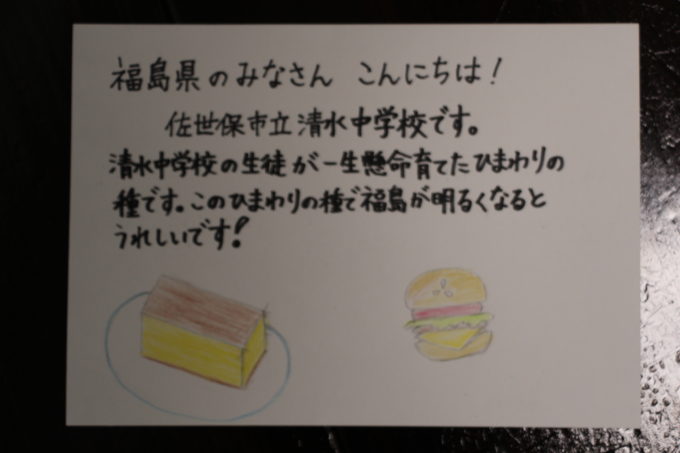 福島県のみなさん こんにちは!
佐世保市立清水中学校です。
清水中学校の生徒が一生懸命育てたひまわりの
種です。このひまわりの種で福島が明るくなると
うれしいです!